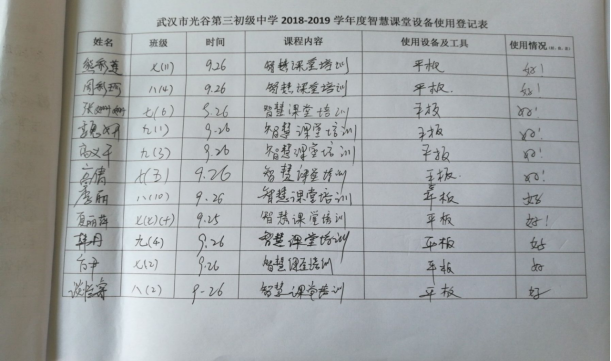 武汉市光谷第三初级中学2018-2019学年度智慧课堂设备使用登记表
姓名 班级 时间 课程内容 使用设备及工具 使用情况
七(11) 9.26 智慧课堂培训 平板 好!
八(4) 9.26 智慧课堂培训 平板. 好!
张 七(6) 9.26 智慧课堂培训 平板 好!
九(1) 9.26 智慧课堂培训 平板 好!
高义平 九(3) 9.26 智慧课堂培训 平板 好!
七(五) 9.26 智慧课堂培训 平板. 好!
丽 八(10) 9.26 智慧课堂培训 平板 好
夏丽萍 七(七)(十) 9.25 智慧课堂培训 平板 好!
韩丹 九(4) 9.26 智慧课堂培训 平板 好
七(2) 9.26 智慧课堂培训 平板 好
八(2) 9.26 智慧课堂培训 平板 好